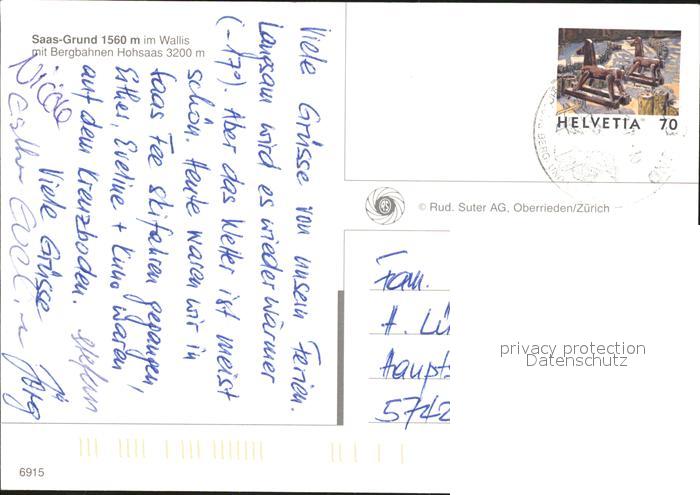 Saas-Grund 1560 m im Wallis
mit Bergbahnen Hohsaas 3200 m
Viele Grüsse von unsern Ferien.
Langsam wird es wieder wärmer
(-17°). Aber das Wetter ist meist
schön. Heute waren wir in
Saas Fee skifahren gegangen,
Esther, Eveline + Kuno waren
auf dem Kreuzboden.
Viele Grüsse
Stefan
Jürg
Nicole
Esther Eveline
HELVETIA 70
© Rud. Suter AG, Oberrieden/Zürich
Fam.
H. Lü
Haupts
5742
privacy protection
Datenschutz
6915